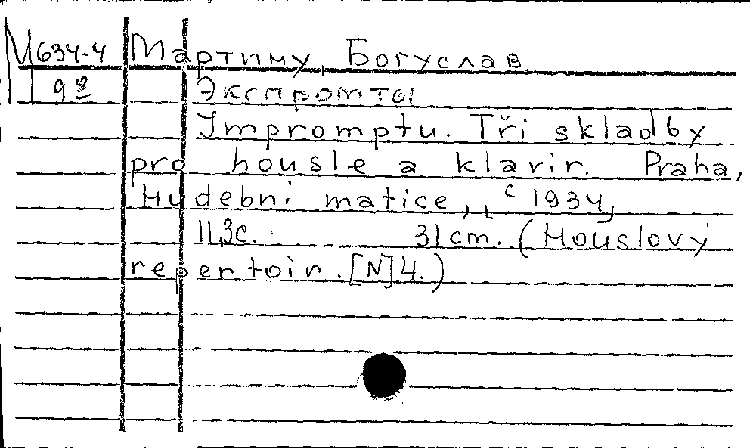 М 634-4 Мартину, Богуслав
98 Экспромты
Impromptu. Tři skladby
pro housle a klavir. Praha,
Hudebni matice, c 1934,
11,3с. 31 cm. (Houslovy
repertoir. [N] 4.)